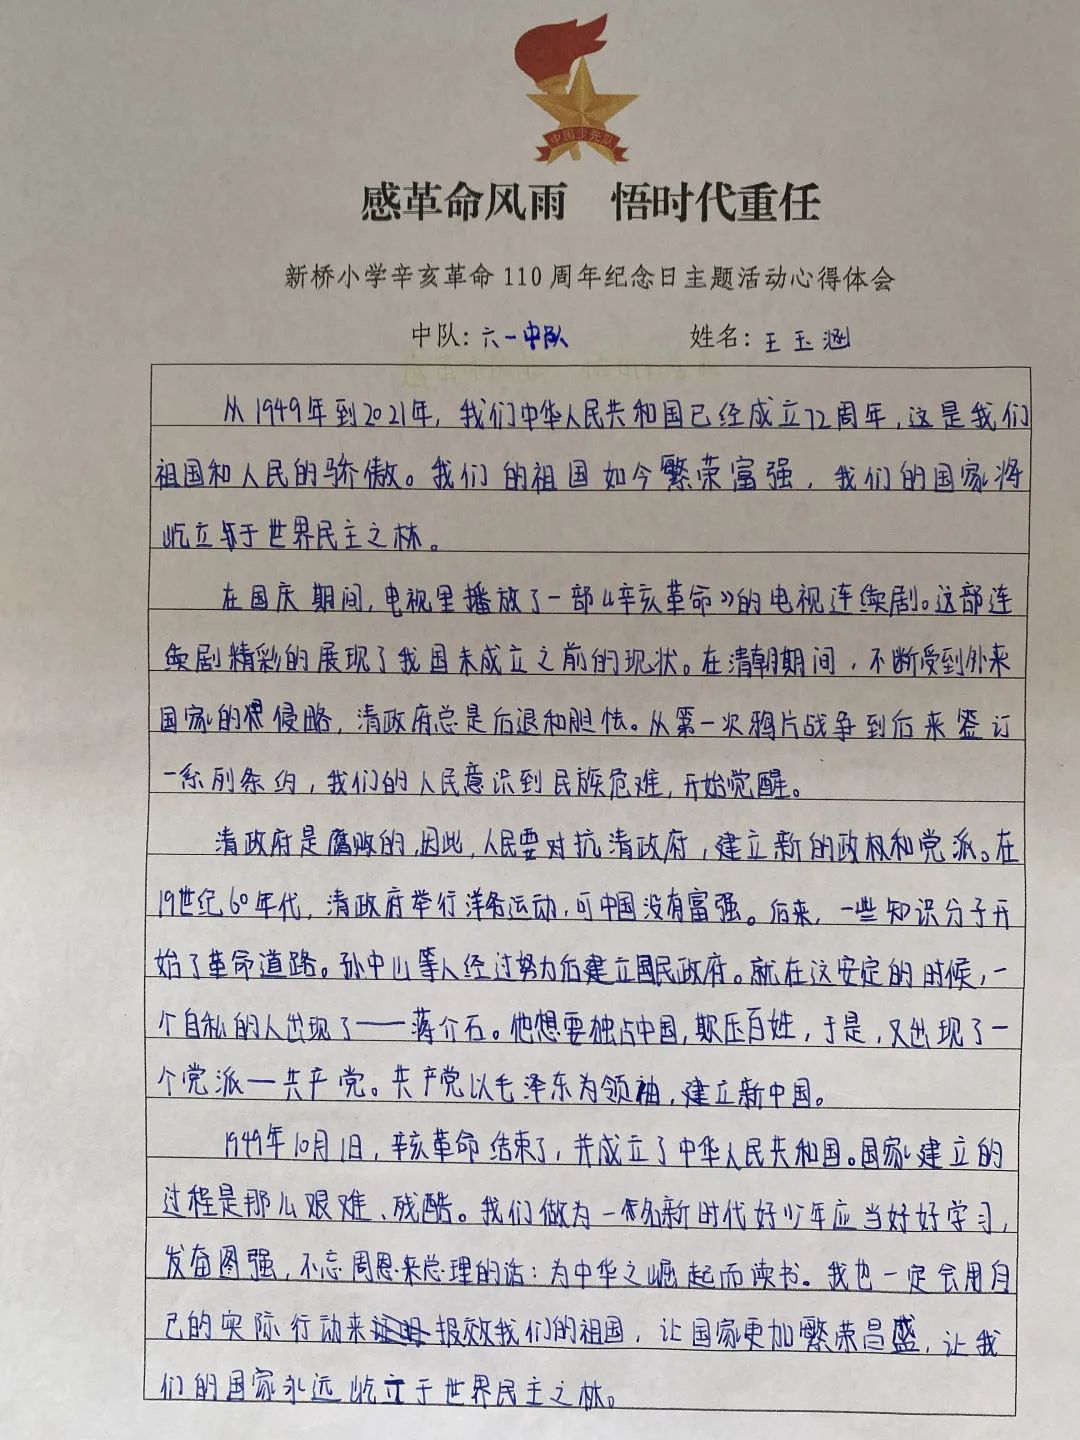 中国少先队
感革命风雨　悟时代重任
新桥小学辛亥革命 110 周年纪念日主题活动心得体会
中队：六一中队　姓名：王玉涵
从1949年到2021年，我们中华人民共和国已经成立72周年，这是我们
祖国和人民的骄傲。我们的祖国如今繁荣富强，我们的国家将
屹立于世界民主之林。
在国庆期间，电视里播放了一部《辛亥革命》的电视连续剧。这部连
续剧精彩的展现了我国未成立之前的现状。在清朝期间，不断受到外来
国家的侵略，清政府总是后退和胆怯。从第一次鸦片战争到后来签订
一系列条约，我们的人民意识到民族危难，开始觉醒。
清政府是腐败的，因此，人民要对抗清政府，建立新的政权和党派。在
19世纪60年代，清政府举行洋务运动，可中国没有富强。后来，一些知识分子开
始了革命道路。孙中山等人经过努力后建立国民政府。就在这安定的时候，一
个自私的人出现了——蒋介石。他想要独占中国，欺压百姓，于是，又出现了一
个党派—共产党。共产党以毛泽东为领袖，建立新中国。
1949年10月1日，辛亥革命结束了，并成立了中华人民共和国。国家建立的
过程是那么艰难、残酷。我们做为一名新时代好少年应当好好学习，
发奋图强，不忘周恩来总理的话：为中华之崛起而读书。我也一定会用自
己的实际行动来报效我们的祖国，让国家更加繁荣昌盛，让我
们的国家永远屹立于世界民主之林。